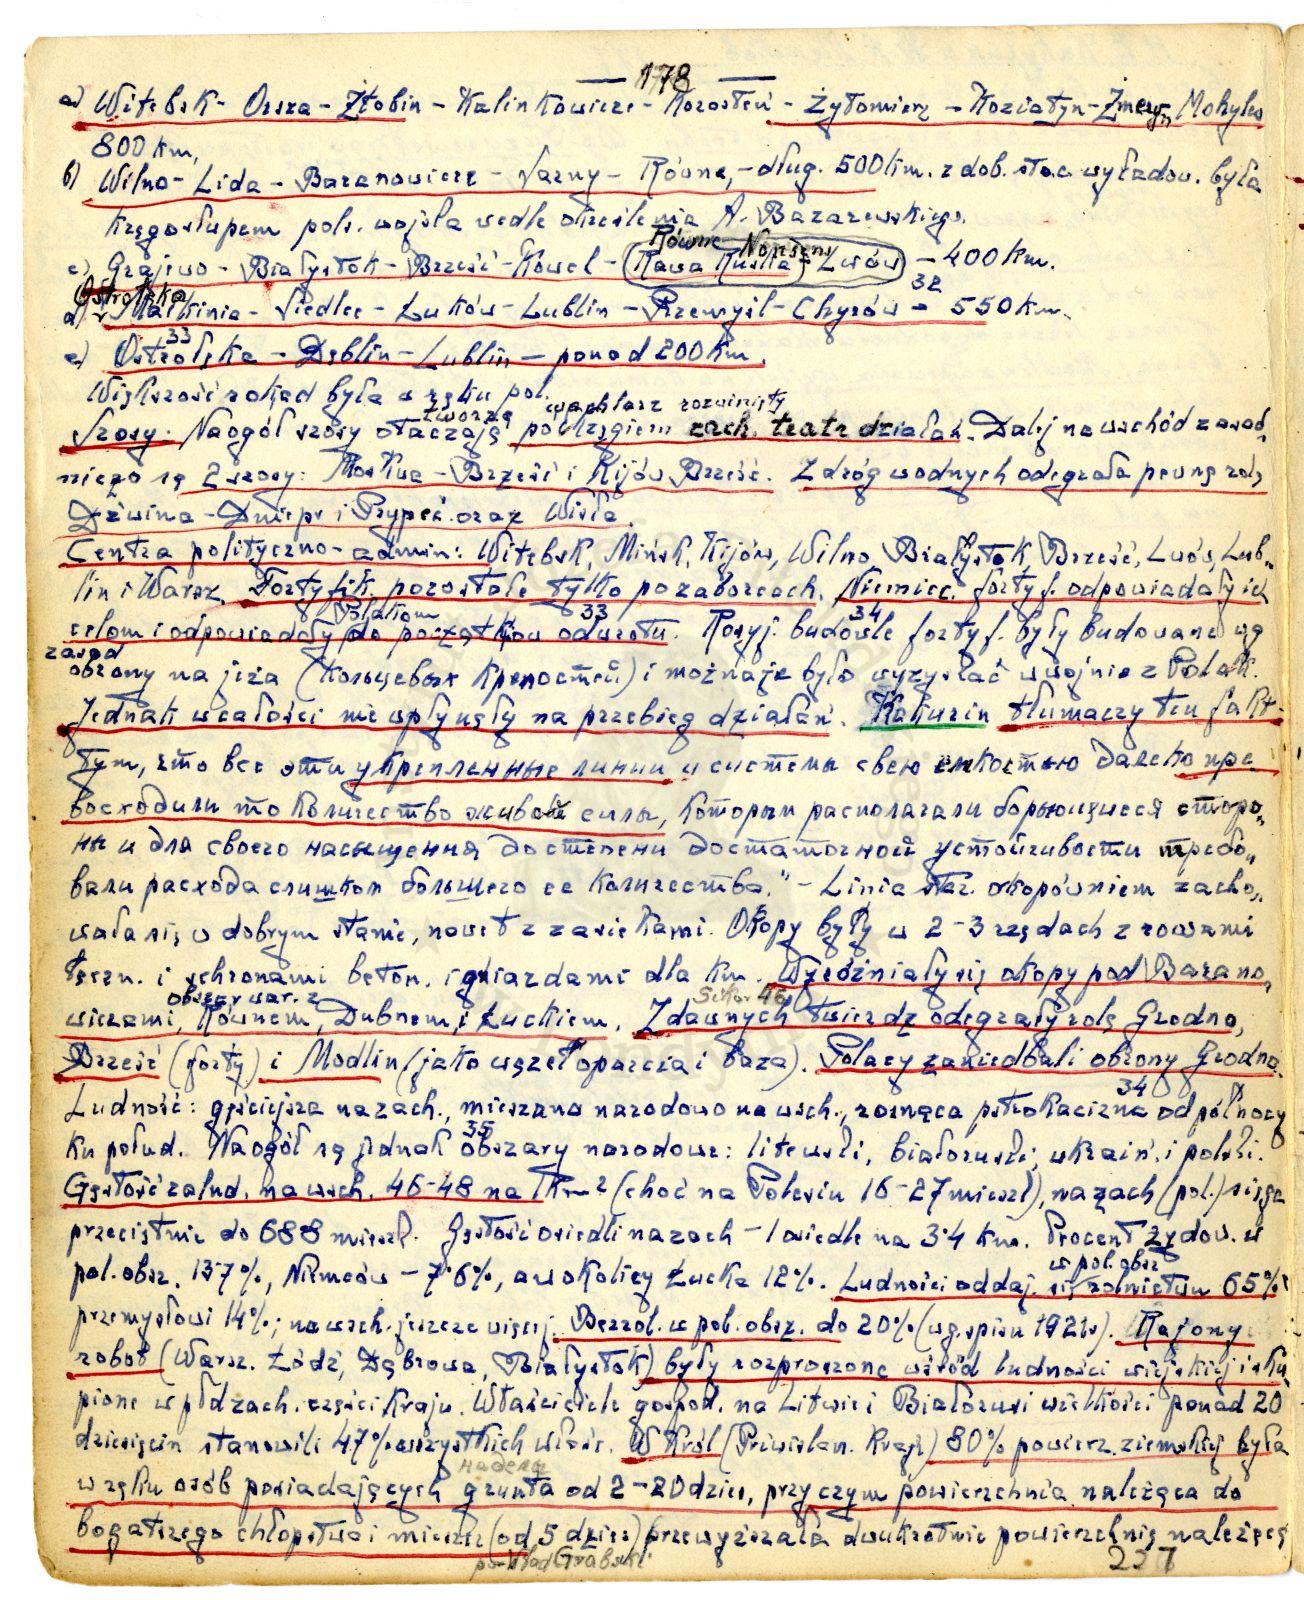 — 178 —
a) Witebsk - Orsza - Żłobin - Kalinkowicze - Korosteń - Żytomierz - Koziatyn - Żmeryn. Mohylew
800 km,
б) Wilno - Lida - Baranowicze - Sarny - Równe, - dług. 500 km. z dob. stac. wyładow. była
kręgosłupem pols. wojsla wedle określenia A. Bazarewskiego.
Równe Nonsens
c) Grajewo - Białystok - Brześć - Kowel - (Rawa Ruska - Lwów) - 400 km.
Ostrołęka 32
d) Małkinia - Siedlce - Łuków - Lublin - Przemyśl - Chyrów = 550 km.
33
e) Ostrołęka - Dęblin - Lublin - ponad 200 km.
Większość rokad była w ręku pol.
tworzą wachlarz rozwinięty
Szosy. Naogół szosy otaczają półkręgiem zach. teatr działań. Dalej na wschód zasad„
niczo są 2 szosy: Moskwa - Brześć i Kijów Brześć. Z dróg wodnych odegrała pewną rolę
Dźwina - Dniepr i Prypeć oraz Wisła.
Centra polityczno-admin: Witebsk, Mińsk, Kijów, Wilno, Białystok, Brześć, Lwów, Lub„
lin i Warsz. Fortyfik. pozostałe tylko po zaborcach. Niemiec. fortyf. odpowiadały ich
33 34
celom i odpowiadały do początków odwrotu. Rosyj. budowle fortyf. były budowane wg
zasad
obrony na jeża (кольцевых крепостей) i można je było wyzyskać w wojnie z Polak.
Jednak w całości nie wpłynęły na przebieg działań. Kakurin tłumaczy ten fakt-
tym, что все эти укрепленные линии и системы свею емкостью далеко пре„
восходили то количество живой силы, которым располагали борющиеся сторо„
ны и для своего насыщения до степени достаточной устойчивости требо„
вали расхода слишком большего ее количества." - Linia star. okopów niem. zacho„
wała się w dobrym stanie, nawet z zasiekami. Okopy były w 2-3 rzędach z rowami
łączn. i schronami beton. i gniazdami dla km. Wyróżniały się okopy pod Barano„
obszar war. z Sikor 46
wiczami, Równem, Dubnem i Łuckiem. Z dawnych twierdz odegrały rolę Grodno,
Brześć (forty) i Modlin (jako węzeł oparcia i baza). Polacy zaniedbali obrony Grodna.
34
Ludność: gęściejsza na zach., mieszana narodowo na wsch., rosnąca pstrokacizna od północy
35
ku połud. Naogół są jednak obszary narodowe: litewski, białoruski, ukraiń. i polski.
Gęstość zalud. na wsch. 46-48 na 1 km² (choć na Polesiu 16-27 mieszk), na zach (pol.) sięga
przeciętnie do 68·8 mieszk. Gęstość osiedli na zach - 1 osiedle na 3·4 km. Procent żydów. w
w pol. obsz
pol. obsz. 13·7%, Niemców - 7·6%, a w okolicy Łucka 12%. Ludności oddaj. się rolnictwu 65%
przemysłowi 14%; na wsch. jeszcze więcej. Bezrol. w pol. obsz. do 20% (wg. spisu 1921 r). Rajony
robot (Warsz. Łódź, Dąbrowa, Białystok) były rozproszone wśród ludności wiejskiej i sku„
pione w płd zach. części kraju. Właściciele gospod. na Litwie i Białorusi wielkości ponad 20
dziesięcin stanowili 47% wszystkich właśc. W Król (Priwislan. Kraj) 80% powierz. ziemskiej była
надела
w ręku osób posiadających grunta od 2-20 dzies, przyczym powierzchnia należąca do
bogatszego chłopstwa i mieszcz (od 5 dzies) przewyższała dwukrotnie powierzchnię należącą
Wład Grabski 227